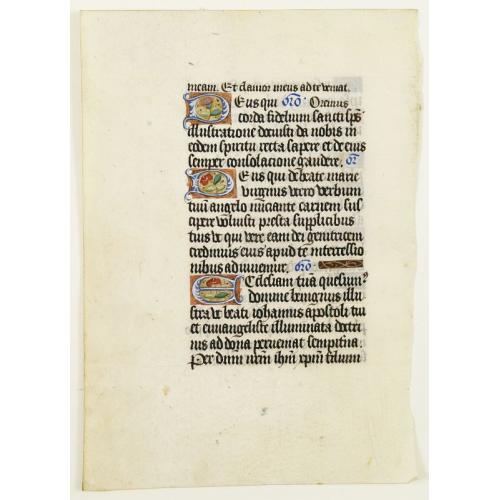 meam. Et clamor meus ad te veniat.
Deus qui orō: Oremus
corda fidelium sancti sp̄s
illustratione docuisti da nobis in
eodem spiritu recta sapere et de eius
semper consolacione gaudere. or̄
Deus qui de beate marie
virginis utero verbum
tuū angelo nūciante carnem sus
cipere voluisti presta supplicibus
tuis ut qui vere eam dei genitricem
credimus eius apud te intercessio
nibus adiuvemur. orō:
Ecclesiam tuā quesum⁹
domine benignus illu
stra ut beati iohannis apostoli tui
et euuangeliste illuminata doctri
nis ad dona perveniat sempiterna.
Per dnm nrm̄ ihm̄ xpm̄ filium